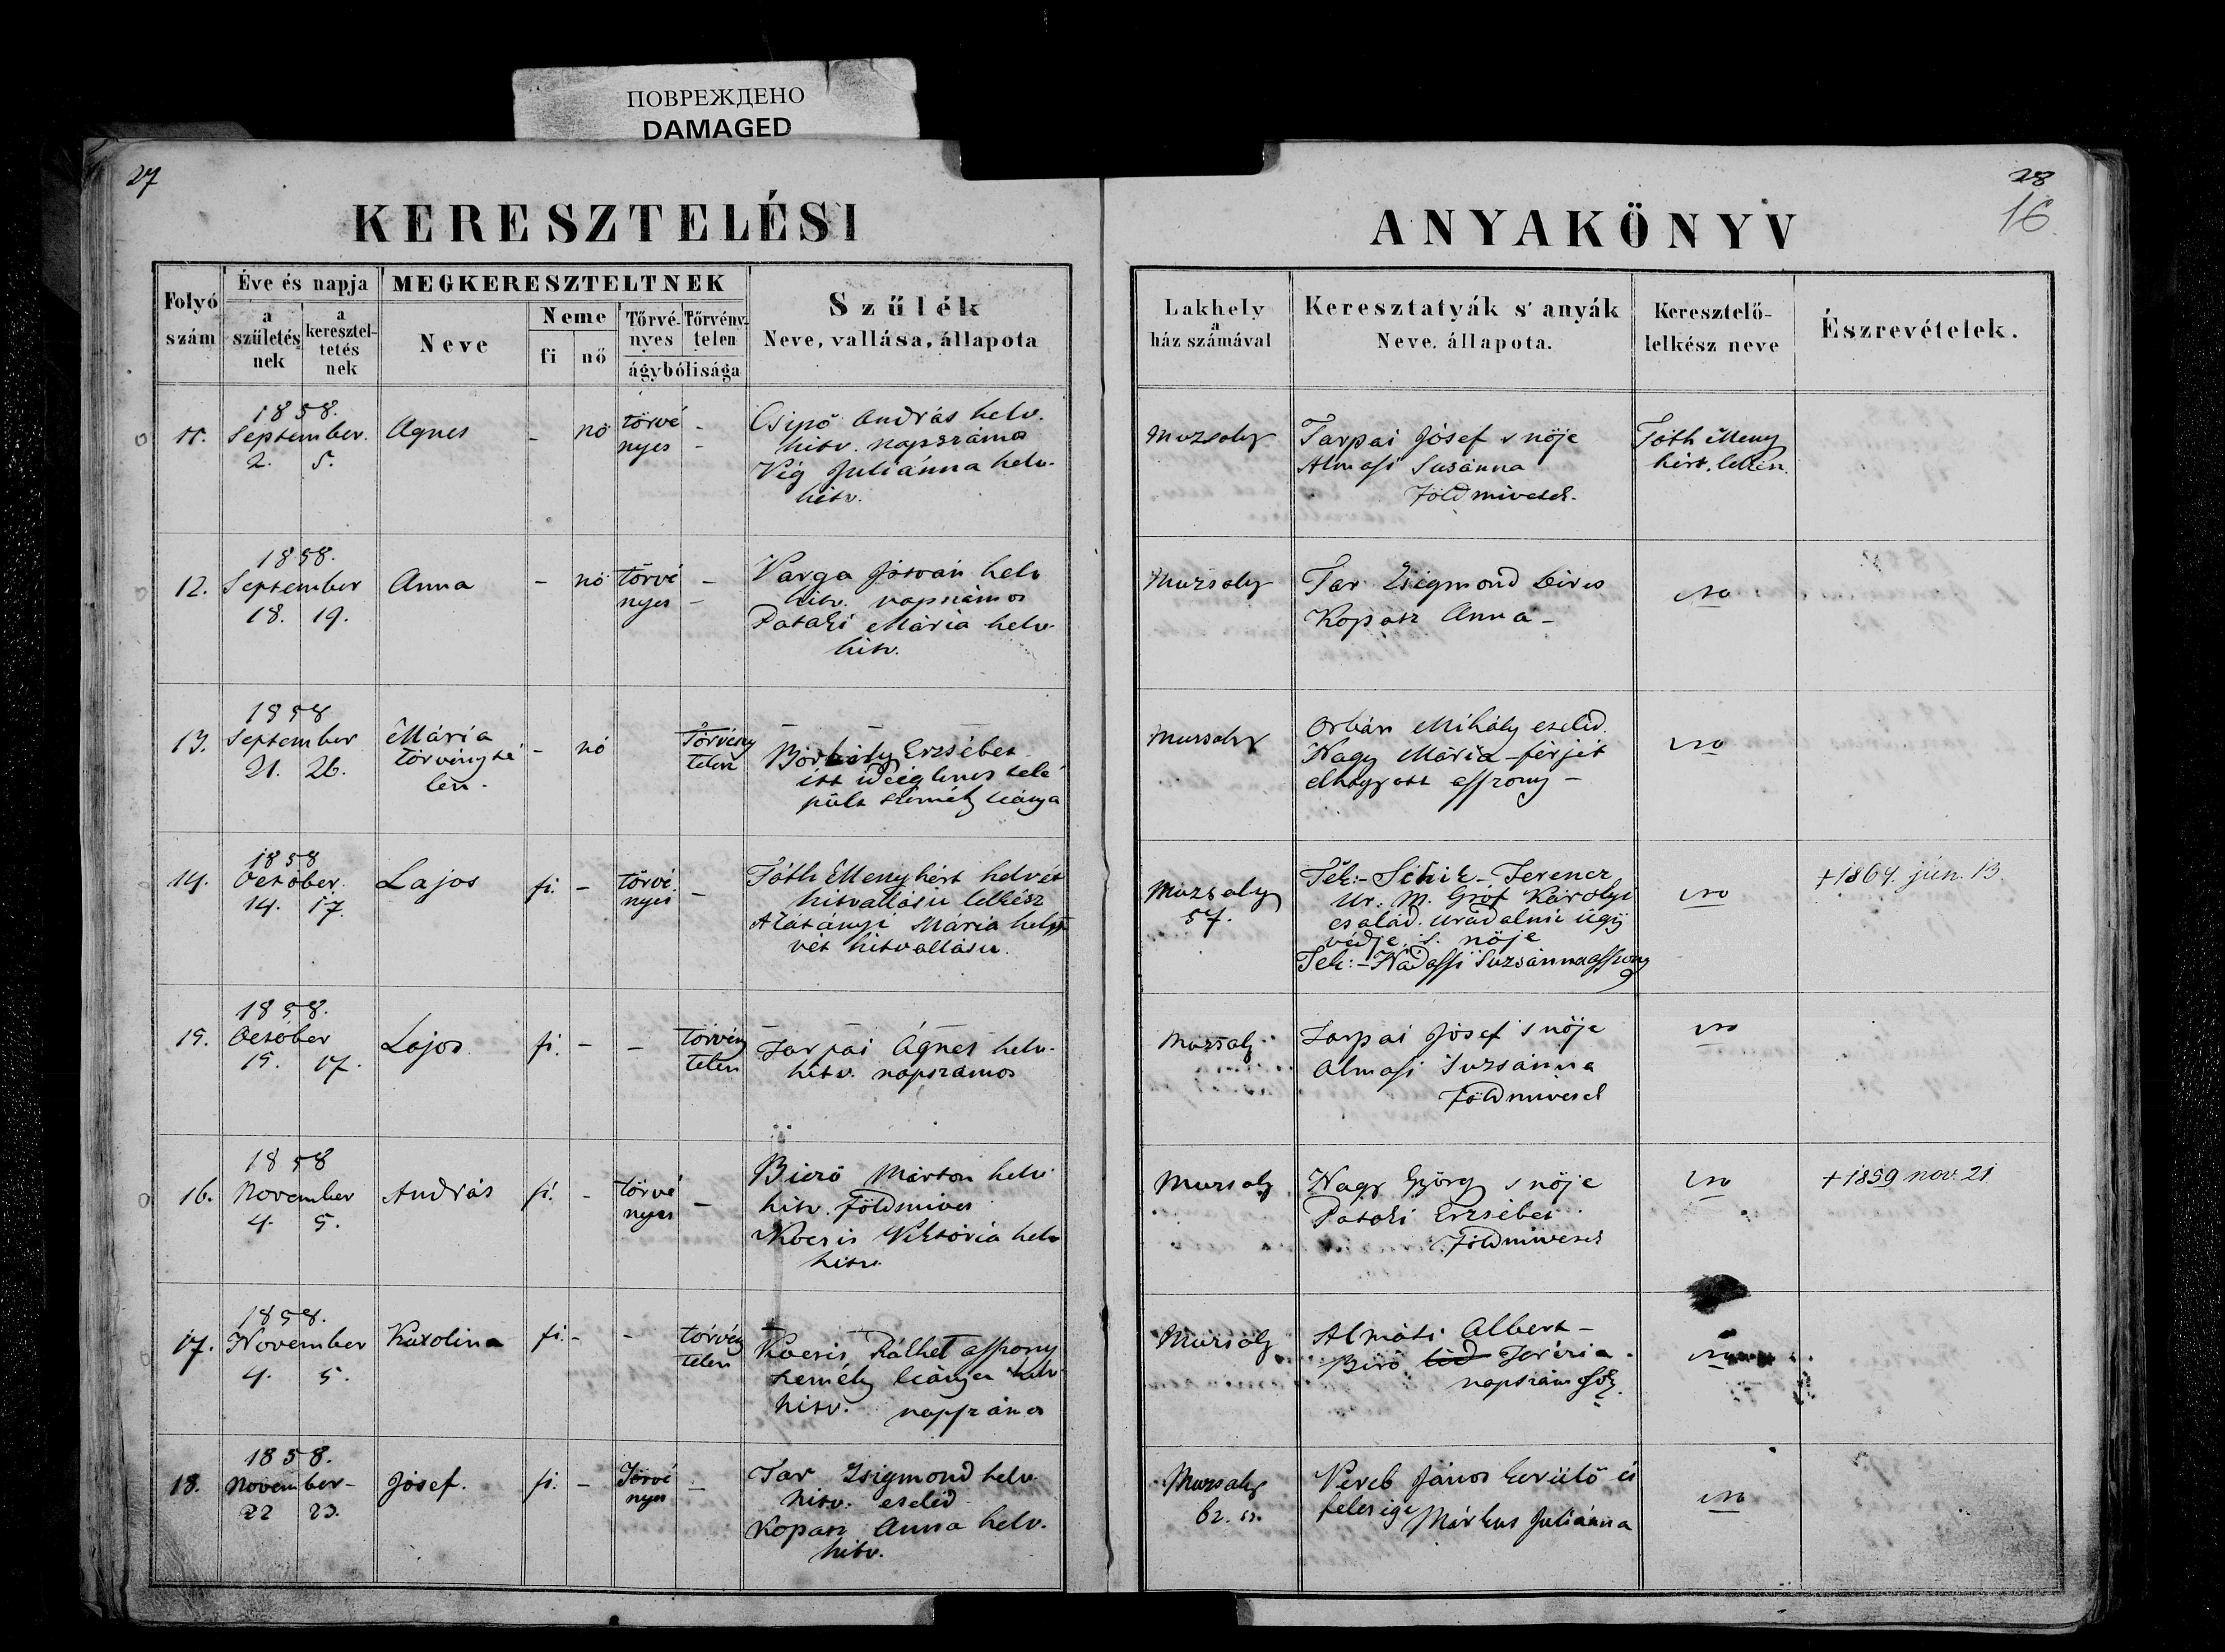 ПОВРЕЖДЕНО
DAMAGED
27
28
16
KERESZTELÉSI
ANYAKÖNYV
Folyó szám
Éve és napja
a születés nek
a keresztel- tetés nek
MEGKERESZTELTNEK
Neve
Neme
fi
nő
Törvé- nyes
Törvény- telen
ágybólisága
Szűlék
Neve, vallása, állapota
Lakhely
a
ház számával
Keresztatyák s' anyák
Neve, állapota.
Keresztelő-
lelkész neve
Észrevételek.
11.
1858.
September.
2. 5.
Agnes
-
nö
törvé
nyes
-
Csipő András helv.
hitv. napszámos
Vig Juliánna helv.
hitv.
Muzsaly
Tarpai Jósef s nöje
Almasi Susánna
Földmivesek.
Tóth Meny
hért. lelkész.
12.
1858.
September
18. 19.
Anna
-
nö
törvé
nyes
-
Varga István helv
hitv. napszámos
Pataki Mária helv
hitv.
Muzsaly
Tar Zsigmond
Kopasz Anna -
13.
1858
September
21. 26.
Mária
törvényte
len.
-
nö
Törvény
telen
Erzsébet
itt ideiglenes tele
pült személy leánya
Muzsaly
Orbán Mihály cseléd.
Nagy Mária - férjét
elhagyott asszony -
14.
1858
October.
14. 17.
Lajos
fi.
-
törvé.
nyes
-
Tóth Menyhért helvét
hitvallásu lelkész
Alátányi Mária helv
vét hitvallásu.
Muzsaly
57.
Tek:- Schik - Ferencz
Ur. M. Gróf Károlyi
család. uradalmi ügy
védje, s. nöje
Tek:- Nádassi Suzsánna asszony
+1864. jún. 13.
15.
1858.
October
15. 17.
Lajos
fi.
-
-
törvény
telen
Tarpai Ágnes helv.
hitv. napszámos
Muzsaly
Tarpai Jósef s nöje
Almasi Suzsánna
Földmivesek
16.
1858
November
4. 5.
András
fi.
-
törvé
nyes
-
Biró Márton helv
hitv. Földmives
Kocsis Viktória helv
hitv.
Muzsaly
Nagy György s nöje
Pataki Erzsébet
Földmivesek
+1859 nov. 21
17.
1858.
November
4. 5.
Karolina
fi.
-
-
törvény
telen
Kocsis Ráhel asszony
személy leánya helv
hitv. napszámos
Muzsaly
Almási Albert -
Biró Terézia
18.
1858.
November -
22 23.
Jósef.
fi.
-
Törvé
nyes
-
Tar Zsigmond helv.
hitv. cseléd
Kopasz Anna helv.
hitv.
Muzsaly
62. sz.
Vereb János kerülő és
felesige Márkus Juliánna